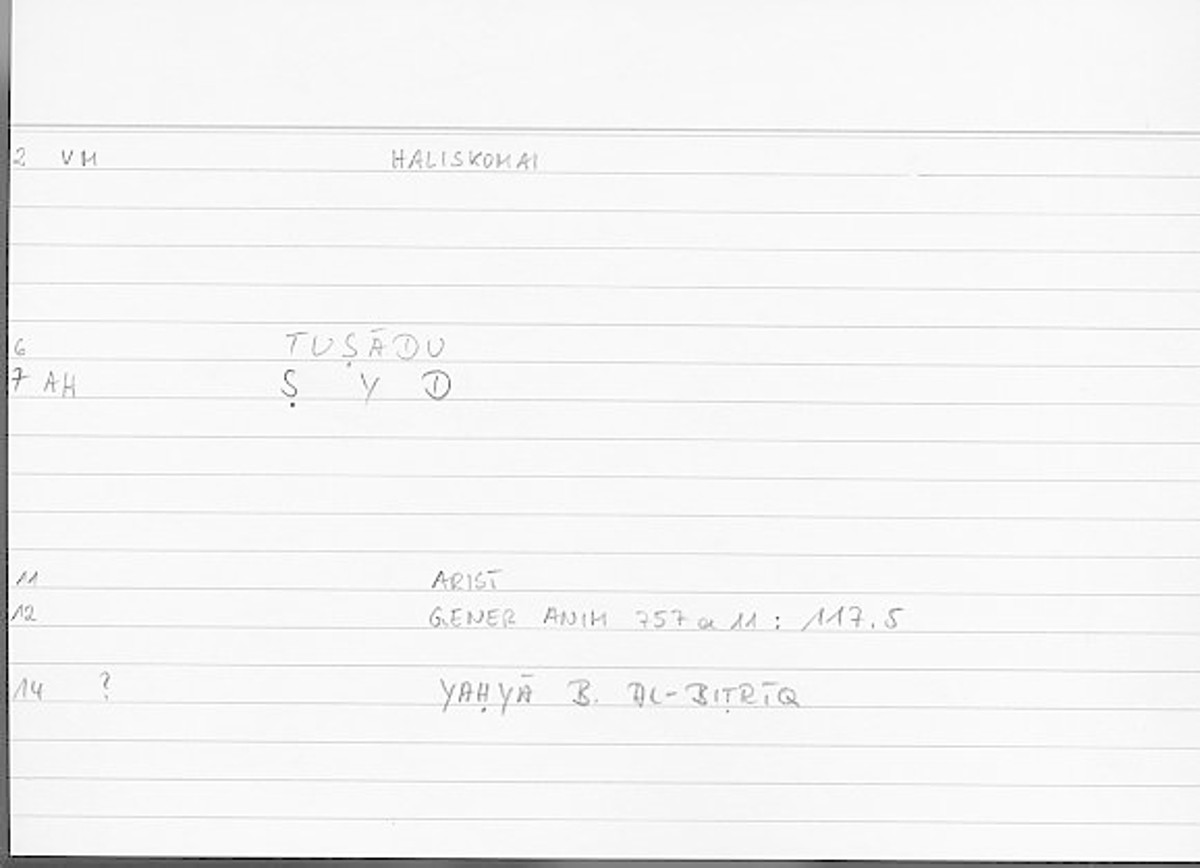 2 VM HALISKOMAI
6 TUṢĀDU
7 AH Ṣ Y D
11 ARIST
12 GENER ANIM 757 a 11 : 117.5
14 ? YAḤYĀ B. AL-BIṬRĪQ